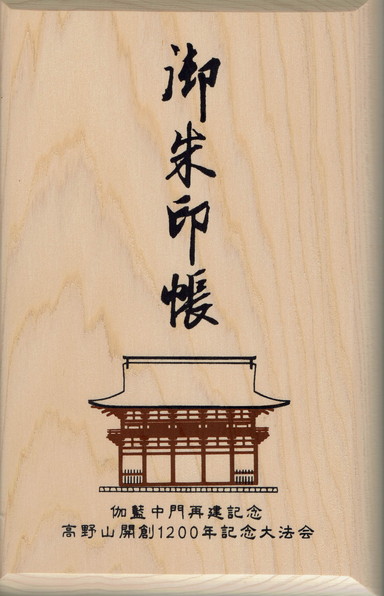 御朱印帳
伽藍中門再建記念
高野山開創1200年記念大法会